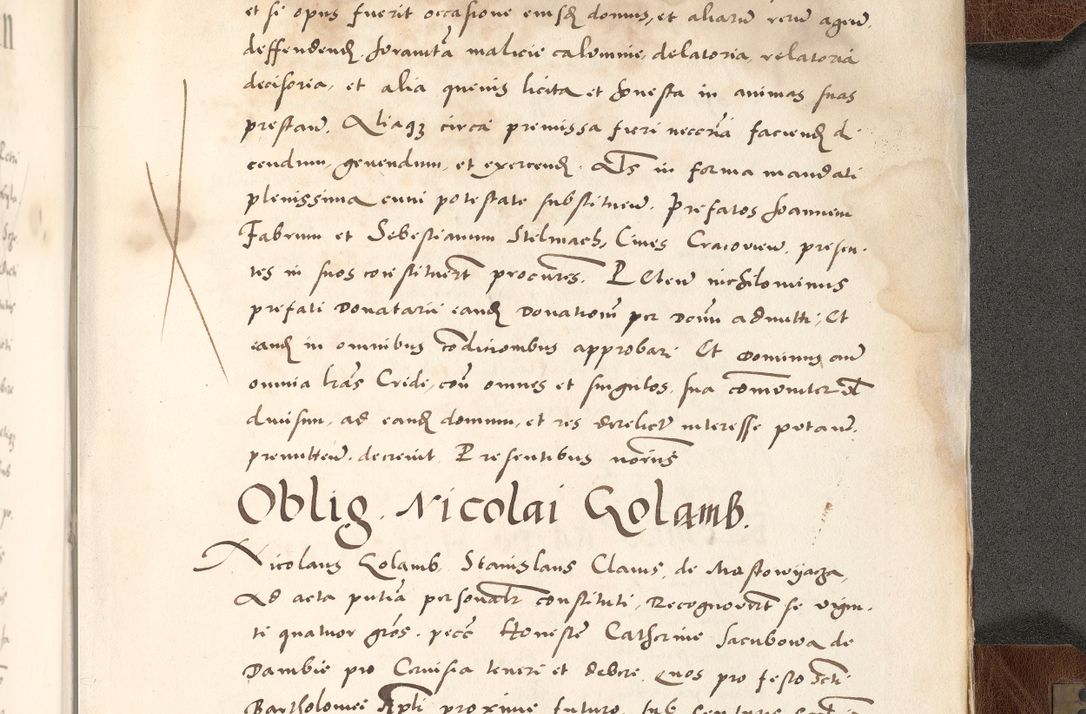 et si opus fuerit occasione eiusd domus, et aliaru reru agen.
deffendend. Joravita malicie calumnie, delatoria, relatoria
decisoria, et alia quevis licita et honesta in animas suas
prestan. Aliaq3 circa premissa fieri necoria faciend di
cendum, gerendum, et exercend. Ats in forma mandati
plenissima cum potestate substituen. Prefatos Joannem
Fabrum et Sebestianum Stelmach, Cives Cracovien. presen-
tes in suos constituert procures. P Cten nichilominus
prefati Donatarii eand Donationem per Domi admitti, Et
eand in omnibus Conditionibus approbari Et Dominus
omnia lras Crede, omnes et singulos, sua comuniter vl
divisim, ad eand domum, et res derelict interesse putan.
premitten. decrevit Presentibus noriis
Oblig. Nicolai Golamb.
Nicolaus Golamb, Stanislaus Clavus, de Mastowyacza,
Ad acta putia personalr constituti, Recognovert se vigin-
ti quatuor gros. pecc Honeste Catherine Jacubowa de
Dambie pro Cervisia teneri et debere, Quos pro festo scti
Bartholomei Apli proxime futuro, sub